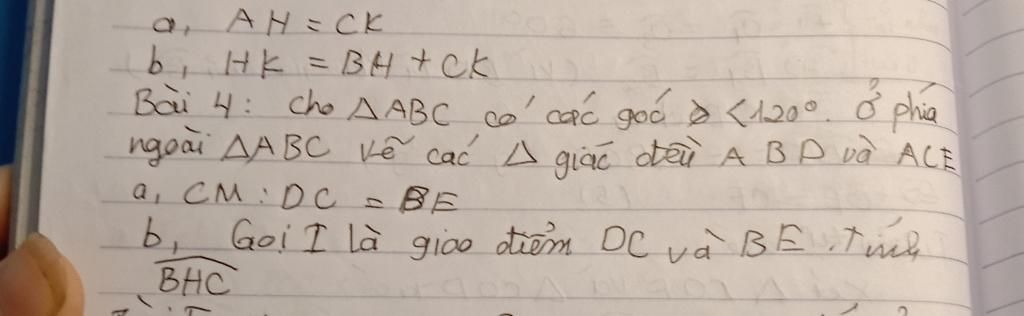 a, AH = CK
b, HK = BH + CK
Bài 4: cho △ABC có các góc < 120°. Ở phía
ngoài △ABC vẽ các △ giác đều ABD và ACE
a, CM: DC = BE
b, Gọi I là giao điểm DC và BE. Tính
\widehat{BHC}